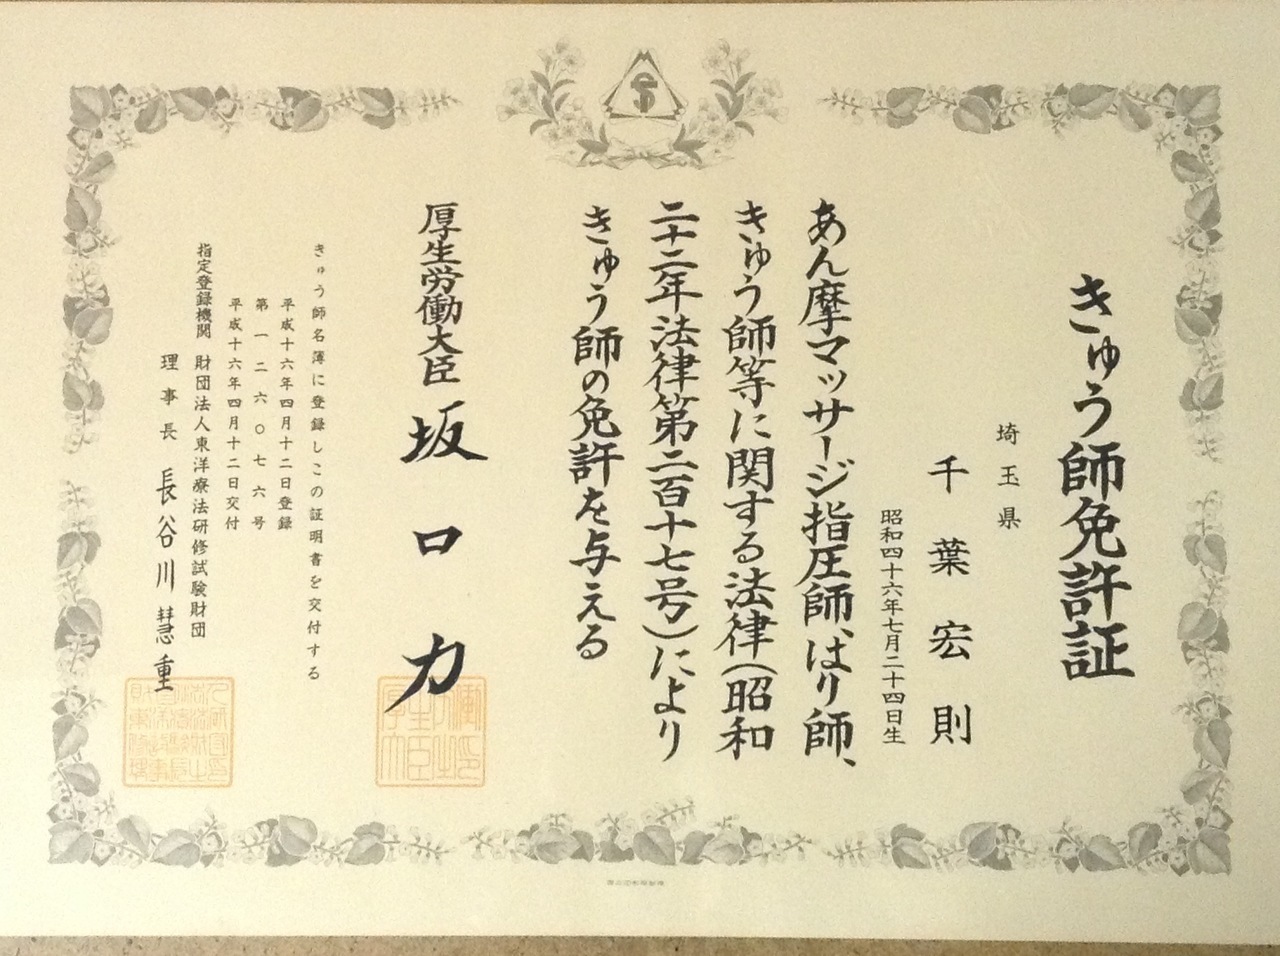 きゅう師免許証
埼玉県
千葉宏則
昭和四十六年七月二十四日生
あん摩マッサージ指圧師、はり師、
きゅう師等に関する法律(昭和
二十二年法律第二百十七号)により
きゅう師の免許を与える
厚生労働大臣 坂口力
きゅう師名簿に登録しこの証明書を交付する
平成十六年四月十二日登録
第一二六〇七六号
平成十六年四月十二日交付
指定登録機関 財団法人東洋療法研修試験財団
理事長 長谷川慧重